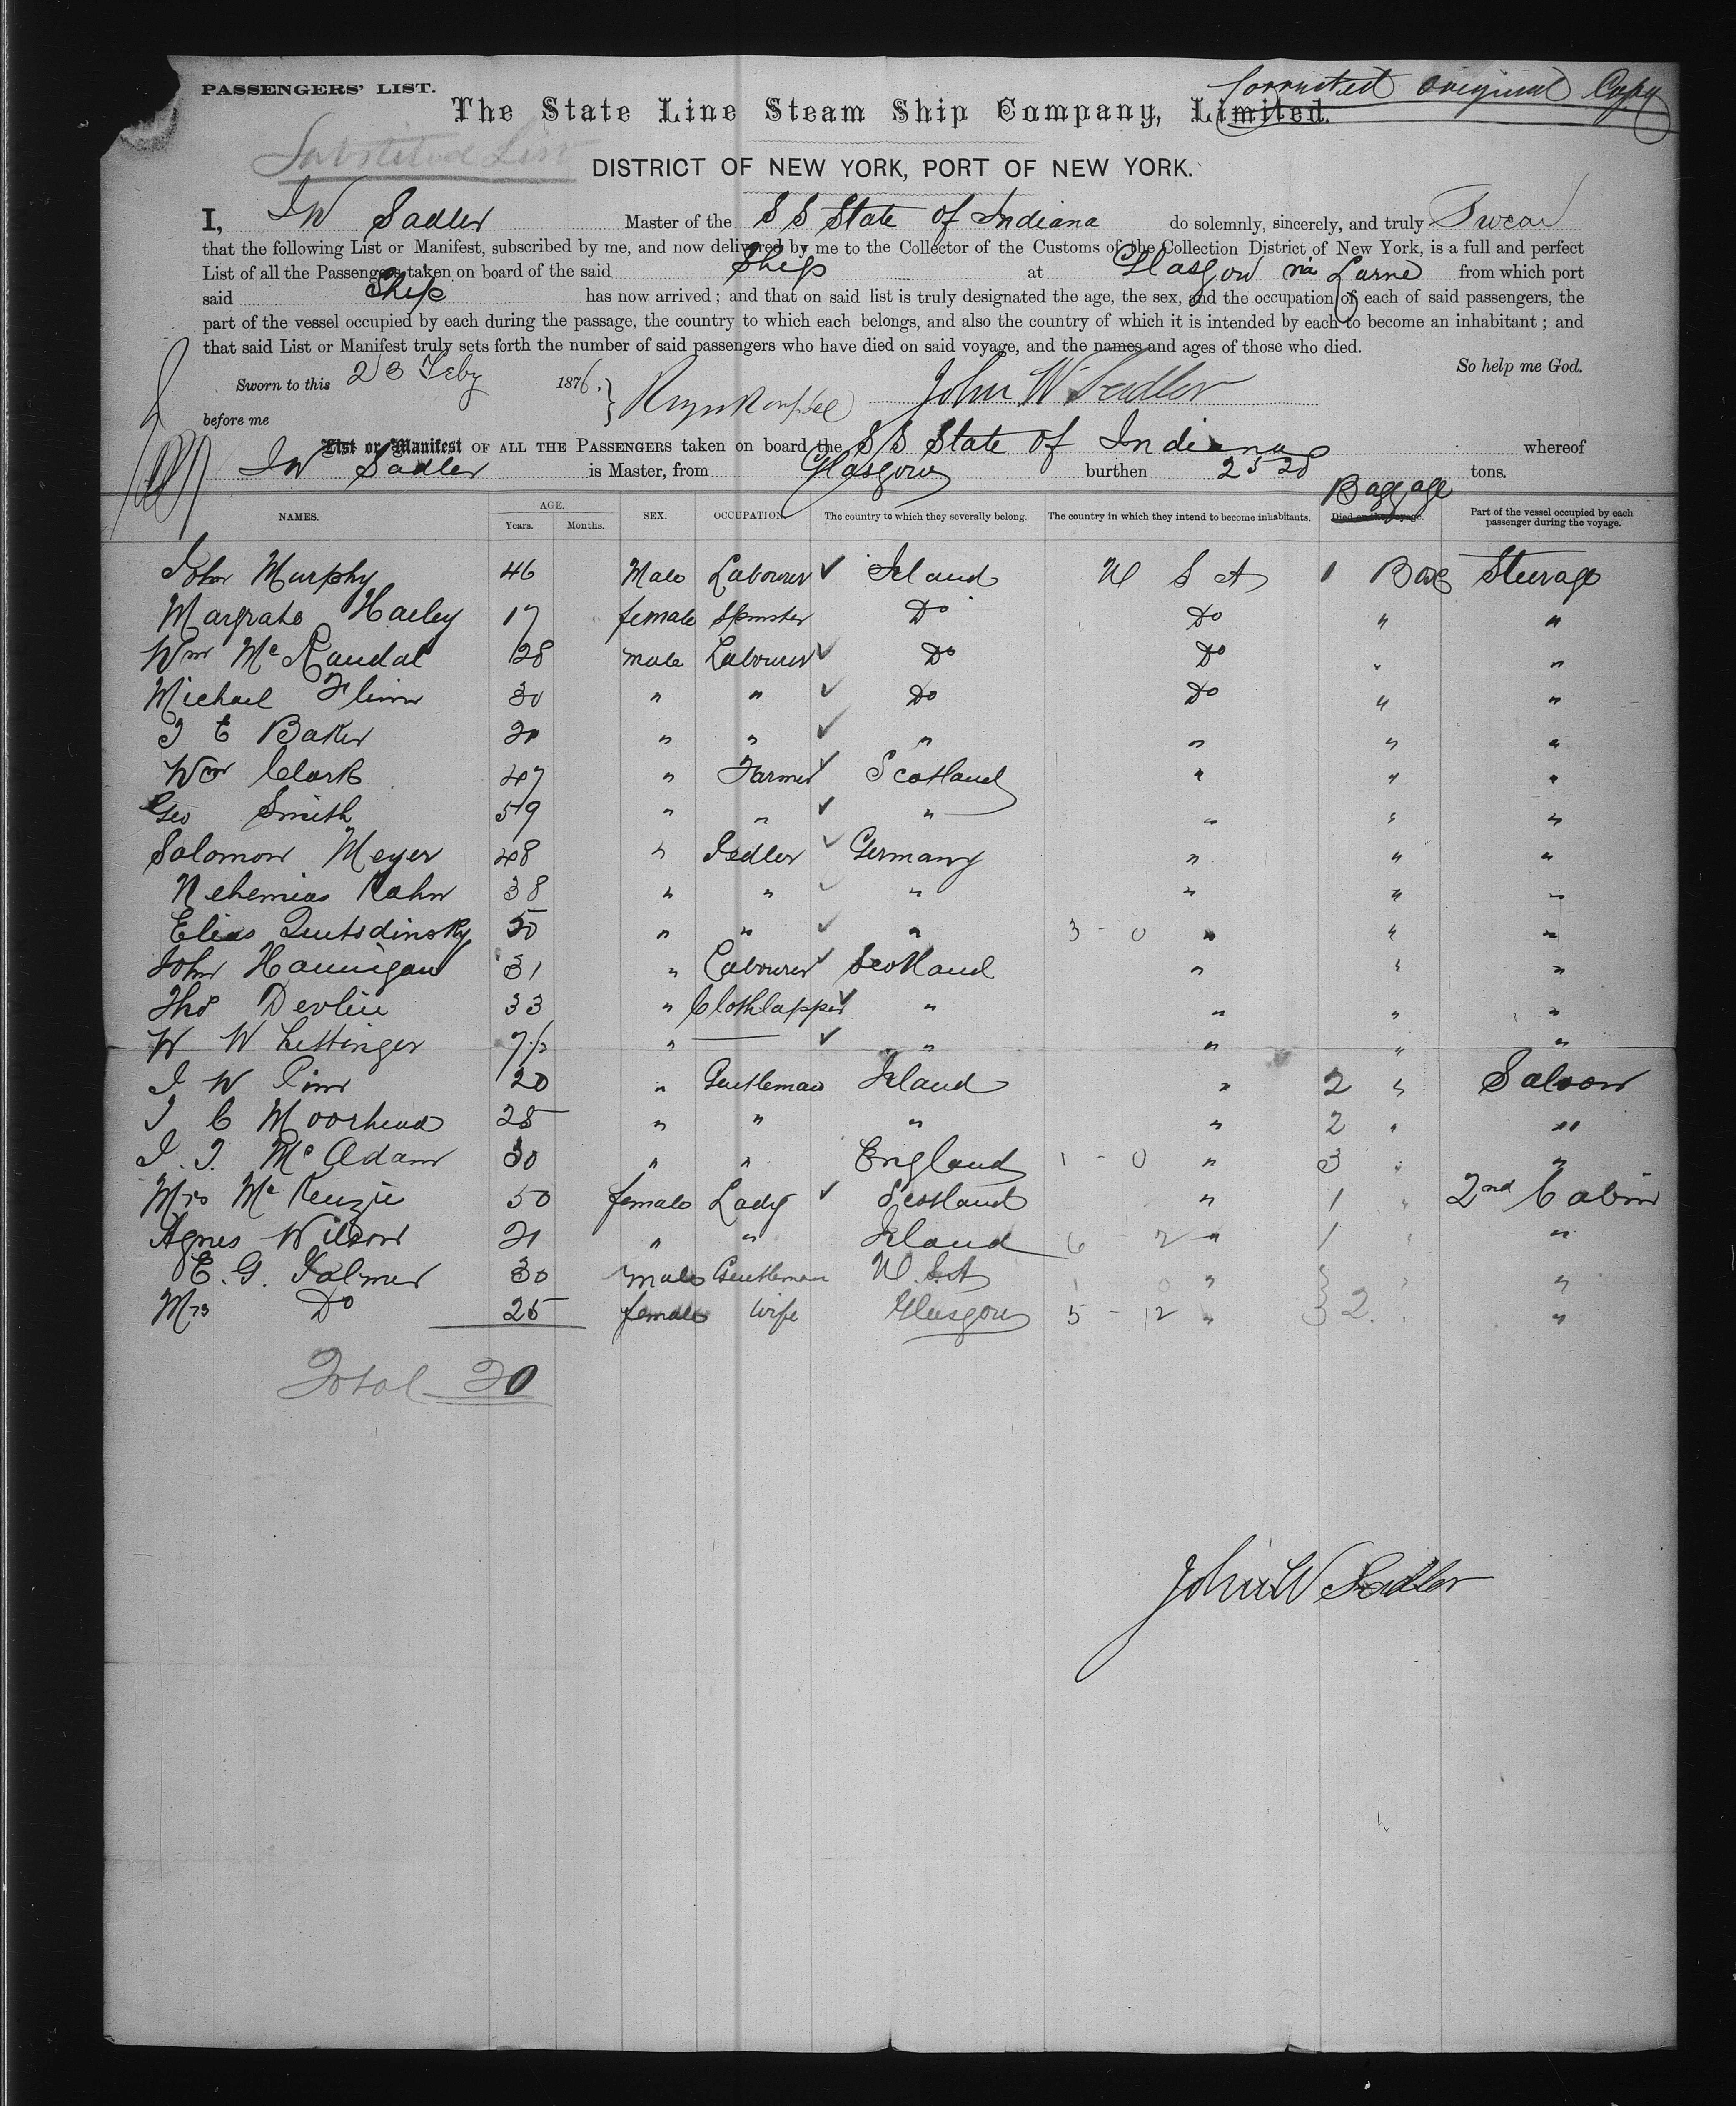 PASSENGERS' LIST.
Corrected original Copy
The State Line Steam Ship Company, Limited.
Substitued List
DISTRICT OF NEW YORK, PORT OF NEW YORK.
I, J W Sadler Master of the S S State of Indiana do solemnly, sincerely, and truly Swear
that the following List or Manifest, subscribed by me, and now delivered by me to the Collector of the Customs of the Collection District of New York, is a full and perfect
List of all the Passengers taken on board of the said Ship at Glasgow via Larne from which port
said Ship has now arrived; and that on said list is truly designated the age, the sex, and the occupation of each of said passengers, the
part of the vessel occupied by each during the passage, the country to which each belongs, and also the country of which it is intended by each to become an inhabitant; and
that said List or Manifest truly sets forth the number of said passengers who have died on said voyage, and the names and ages of those who died.
So help me God.
Sworn to this 23 Feby 1876. } John W Sadler
before me
List or Manifest OF ALL THE PASSENGERS taken on board the S S State of Indiana whereof
J W Sadler is Master, from Glasgow burthen 2528 tons.
Baggage
NAMES. AGE. Years. Months. SEX. OCCUPATION. The country to which they severally belong. The country in which they intend to become inhabitants. Died on the voyage. Part of the vessel occupied by each passenger during the voyage.
John Murphy 46 Male Labourer ✓ Ireland U S A 1 Box Steerage
Margrate Haeley 17 female Spinster Do Do " "
Wm Mc Randal 28 male Labourer ✓ Do Do " "
Michael Flinn 30 " " ✓ Do Do " "
J E Baker " " ✓ " " " "
Wm Clark 47 " Farmer ✓ Scotland " " "
Geo Smith 59 " " ✓ " " " "
Solomon Meyer 48 " Pedler ✓ Germany " " "
Nehemias Kahn 38 " " ✓ " " " "
Elias 50 " " ✓ " 3 - 0 " " "
John Hannigan 31 " Labourer ✓ Scotland " " "
Thos Devlin 33 " Clothlapper ✓ " " " "
W W Lettinger " — ✓ " " " "
J W Pim 20 " Gentleman Ireland " 2 " Saloon
J C Moorhead 25 " " " " 2 " "
J. J. Mc Adam 30 " " England 1 - 0 " 3 " "
Mrs Mc Kenzie 50 female Lady ✓ Scotland " 1 " 2nd Cabin
Agnes Wilson 21 " " Ireland 6 - 2 " 1 " "
E. G. Palmer 30 male Gentleman U.S.A 1 0 " "
Mrs Do 25 female Wife Glasgow 5 - 12 " 3 2. " "
Total 20
John W Sadler